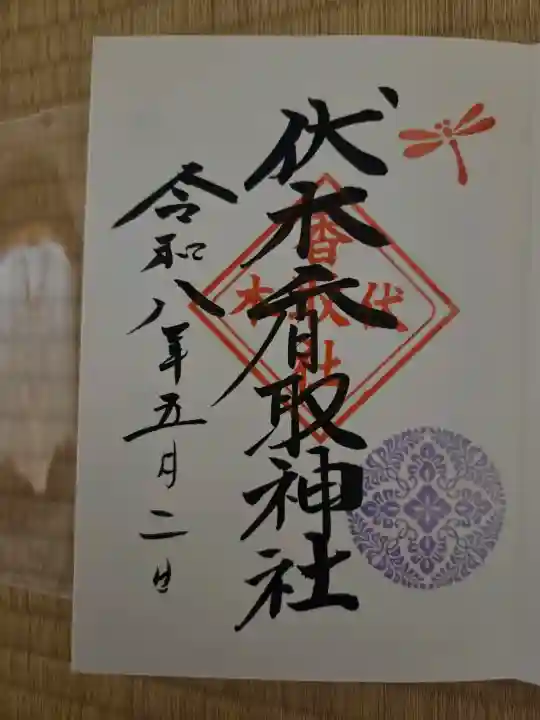 伏木香取神社
香取社
伏
木
令和八年五月二日